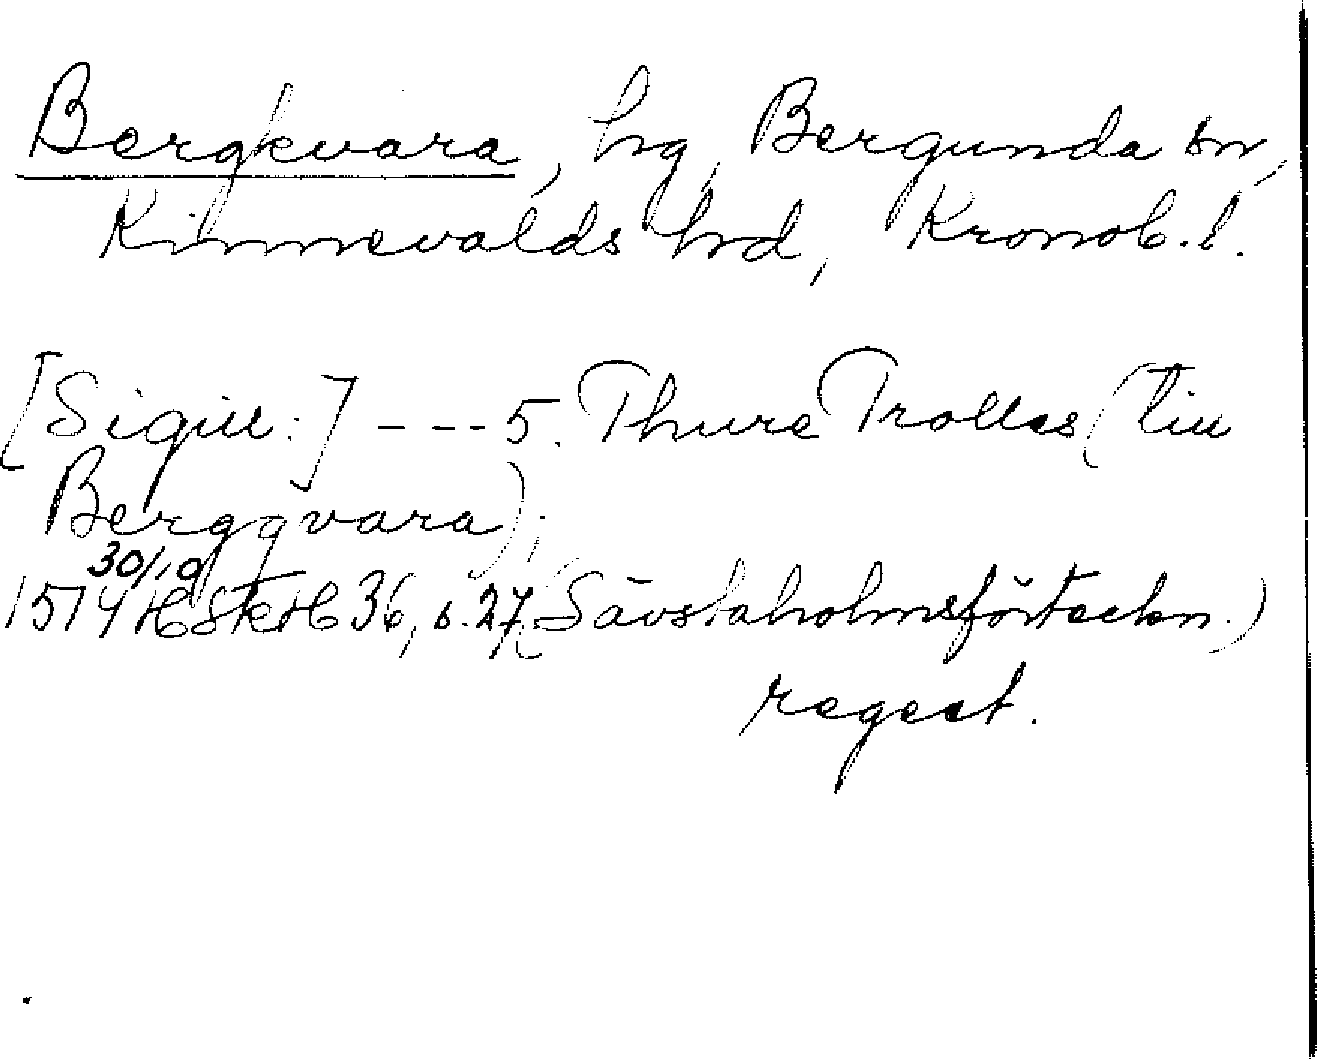 Bergkvara, hg, Bergunda sn,
Kinnevalds hrd, Kronob. l.
[Sigill:] --- 5. Thure Trolles (till
Berggvara);
30/10
1574 HSkH 36, s. 27 (Sävstaholmsförteckn.)
regest.